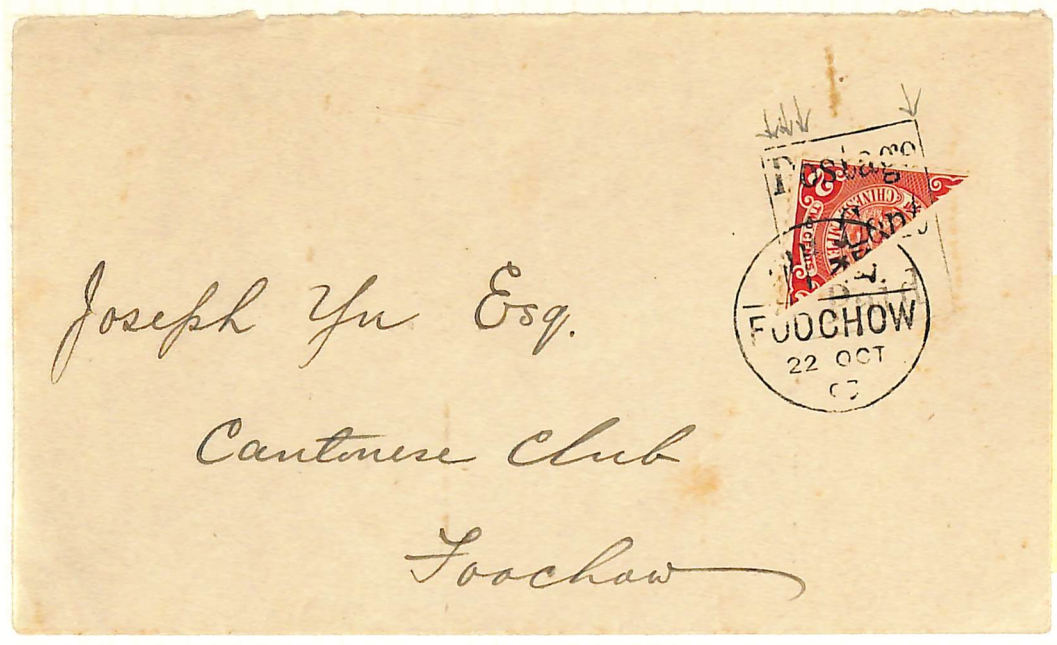 Postage
Paid
2
CHINESE
FOOCHOW
22 OCT
Joseph Yu Esq.
Cantonese Club
Foochow